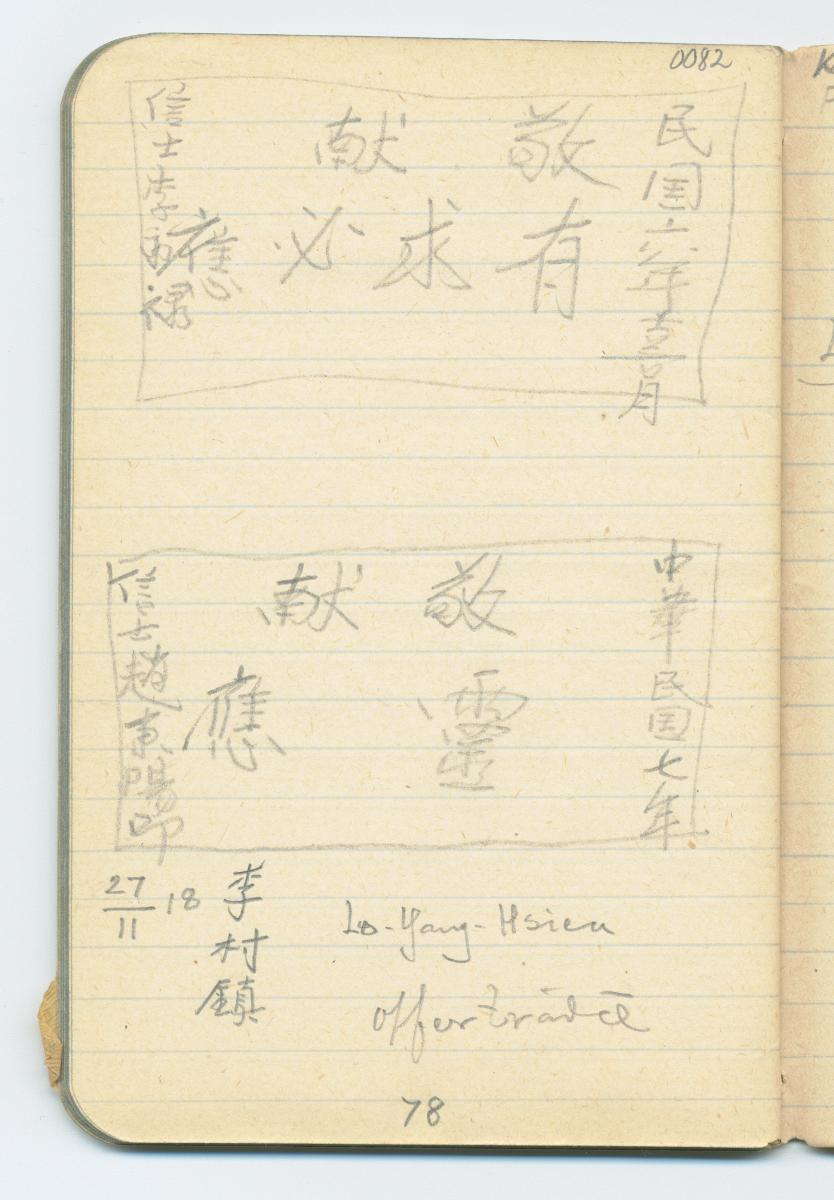 0082
民国六年壹月
敬献
有求必應
信士李
中華民国七年
敬献
靈應
信士趙東陽叩
27/11 18
李村鎮
Lo-Yang-Hsien
offerträdet
78